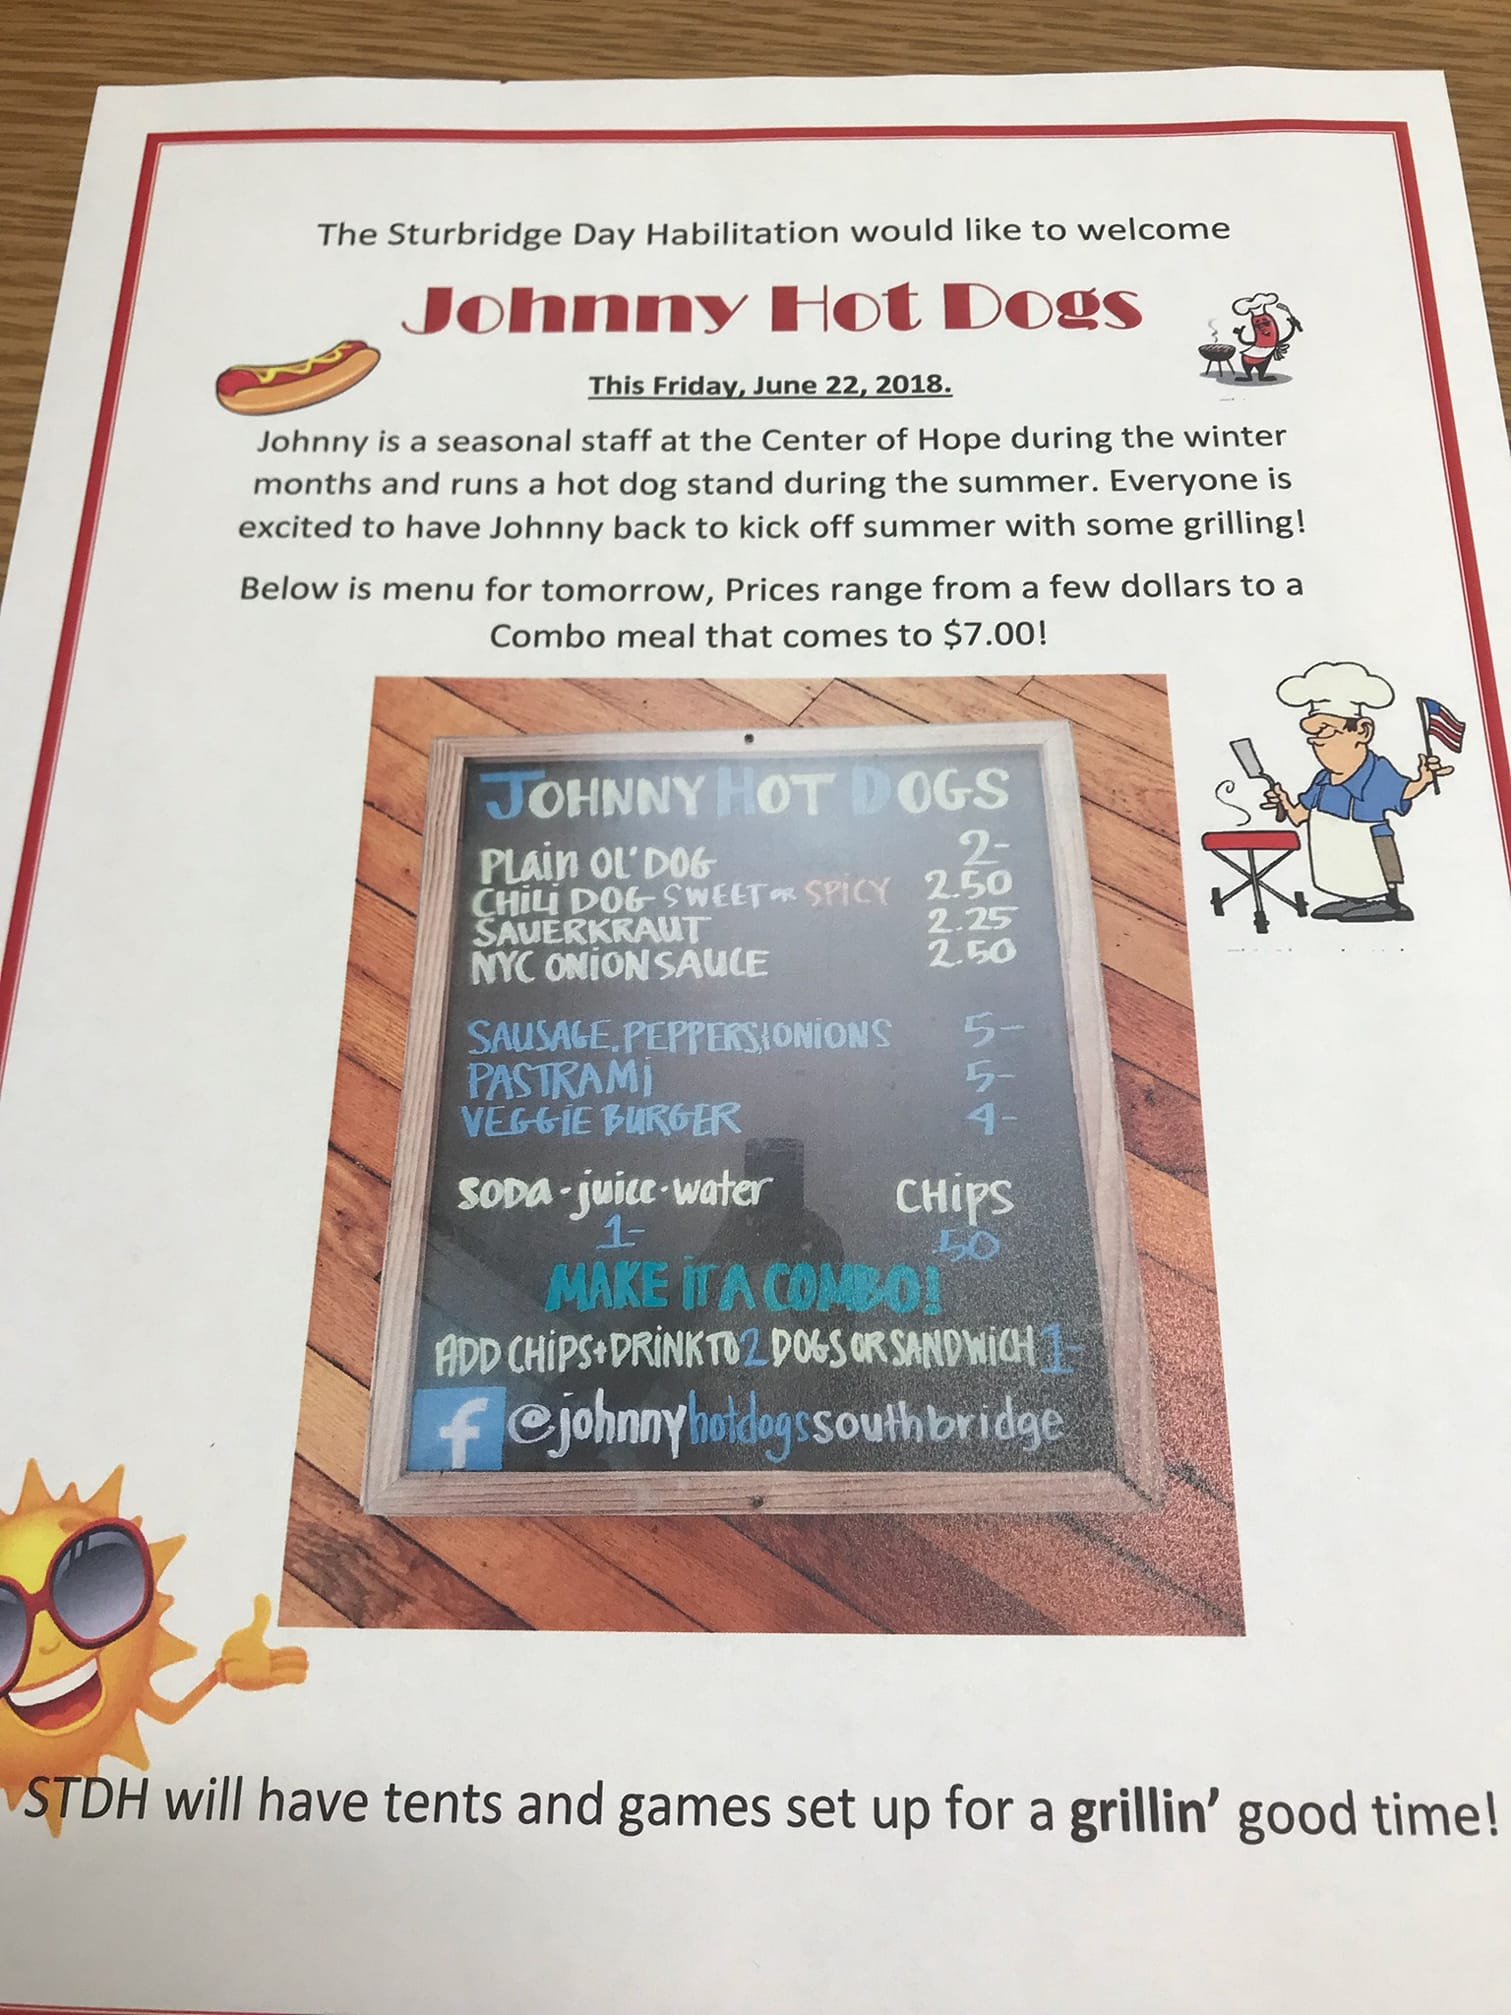 The Sturbridge Day Habilitation would like to welcome
Johnny Hot Dogs
This Friday, June 22, 2018.
Johnny is a seasonal staff at the Center of Hope during the winter
months and runs a hot dog stand during the summer. Everyone is
excited to have Johnny back to kick off summer with some grilling!
Below is menu for tomorrow, Prices range from a few dollars to a
Combo meal that comes to $7.00!
JOHNNY HOT DOGS
PLAIN OL' DOG 2-
CHILI DOG SWEET OR SPICY 2.50
SAUERKRAUT 2.25
NYC ONION SAUCE 2.50
SAUSAGE, PEPPERS & ONIONS 5-
PASTRAMI 5-
VEGGIE BURGER 4-
SODA - juice - water CHIPS
1- 50
MAKE IT A COMBO!
ADD CHIPS + DRINK TO 2 DOGS OR SANDWICH 1-
f @johnnyhotdogssouthbridge
STDH will have tents and games set up for a grillin' good time!